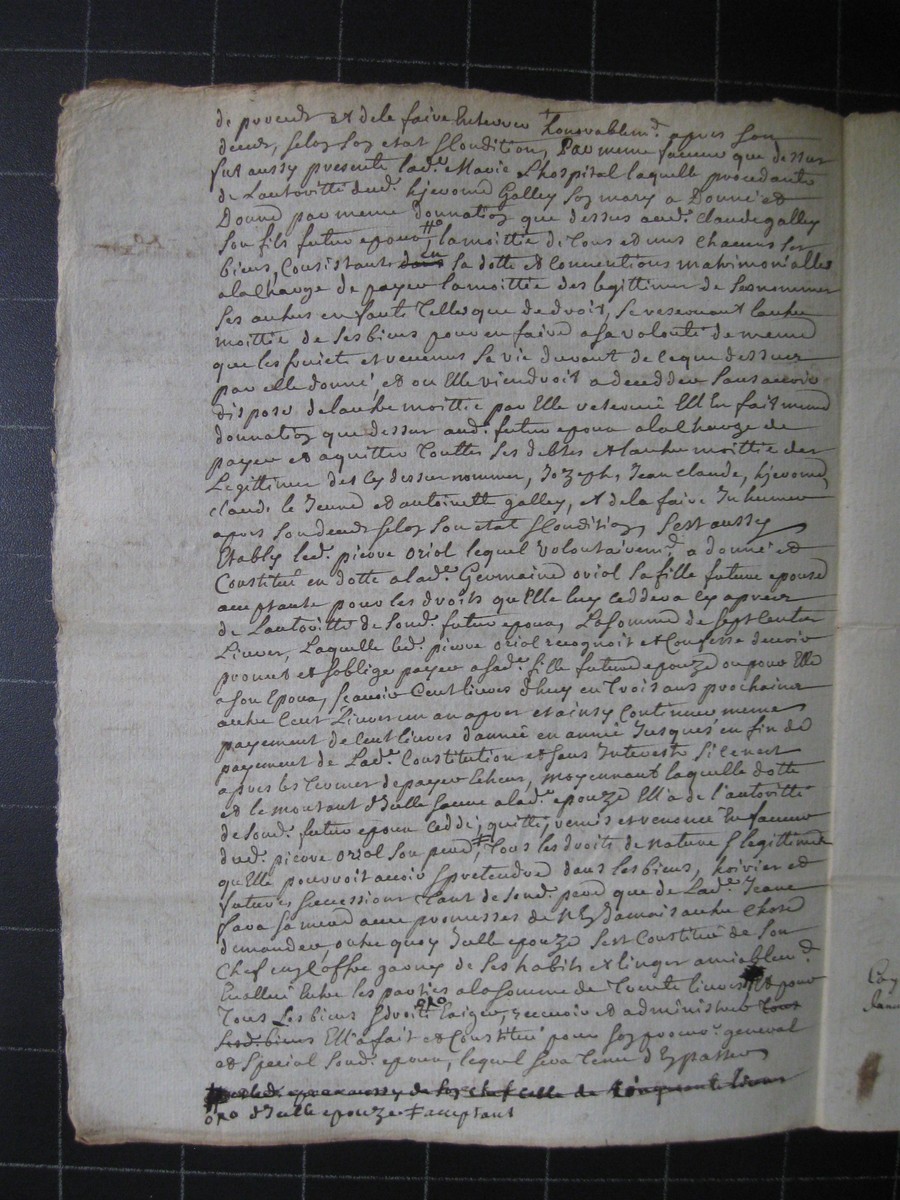 de procureur et de la faire Enterrer honorablemt. apres son
deces, selon son etat & Condition, Par meme faveur que dessus
fut aussy presente lade. Marie L'hospital laquelle procedante
de Lautoritté dud. hjerome Galley son mary a Donné et
Donne par meme donnation que dessus aud. Claude galley
son fils futur epoux, la moittié de Tous et uns chacuns ses
biens, Consistants en sa dotte et Conventions matrimonialles
a la Charge de payer la moittie des legittimes de sesnommes
ses autres enfants Telles que de droit, se reservant lautre
moittie de ses biens pour en faire a sa volonté de meme
que les fruict et revenus sa vie durant de ceque dessus
par elle donné, et ou Elle viendroit a decedder sans avoir
dispose de lautre moittie par Elle reservée Ell En fait meme
donnation que dessus aud. futur epoux a la Charge de
payer et aquitter Touttes ses debtes et lautre moittie des
Legittimes des Cy dessus nommes, Jozeph, Jean Claude, hjerome,
claude le Jeune et antoinette galley, et de la faire Inhumer
apres son deces selon son etat & Condition, Sest aussy
Etably led. pierre oriol lequel volontairemt. a donné et
Constitué en dotte a lade. Germaine oriol sa fille future epouse
acceptante pour les droits qu'Elle luy ceddera cy apres
de Lautoritté de sond. futur epoux, La somme de sept Cents
Livres, Laquelle led. pierre oriol recognoit et Confesse devoir
promet et soblige payer a sade. fille future epouze ou pour Elle
a son Epoux, scavoir Cent livres d'huy en Trois ans prochains
autre Cent Livres un an apres et ainsy Continuer meme
payement de Cent livres d'année en année Jusques en fin de
payement de Lade. Constitution et sans Interests si ce nest
apres les Termes de payer echeus, moyennant laquelle dotte
et le montant d'Icelle lade. epouze Ell'a de l'autoritté
de sond. futur epoux ceddé, quitté, remis et renoncé En faveur
dud. pierre oriol son pere, Tous les droits de nature & legittime
qu'Elle pourroit avoir & pretendre dans les biens, hoirie et
futures successions Tant de sond. pere que de Lade. Jeane
fara sa mere avec promesses de n'En Jamais autre Chose
demander, outre quoy Icelle epouze sest Constitué de son
Chef un Coffre garny de ses habits et linges amiablemt.
Evallué Entre les parties a la somme de Trente livres Et pour
Tous Les biens & droits oxo Exiger, recevoir et administrer Tous
Lesd. biens Ell'a fait et Constitué pour son procur. general
et special sond. epoux, lequel sera Tenu d'En passer
led. epoux aussy de son chef celle de Cinquante livres
oxo d'Icelle epouze ‡ acceptant